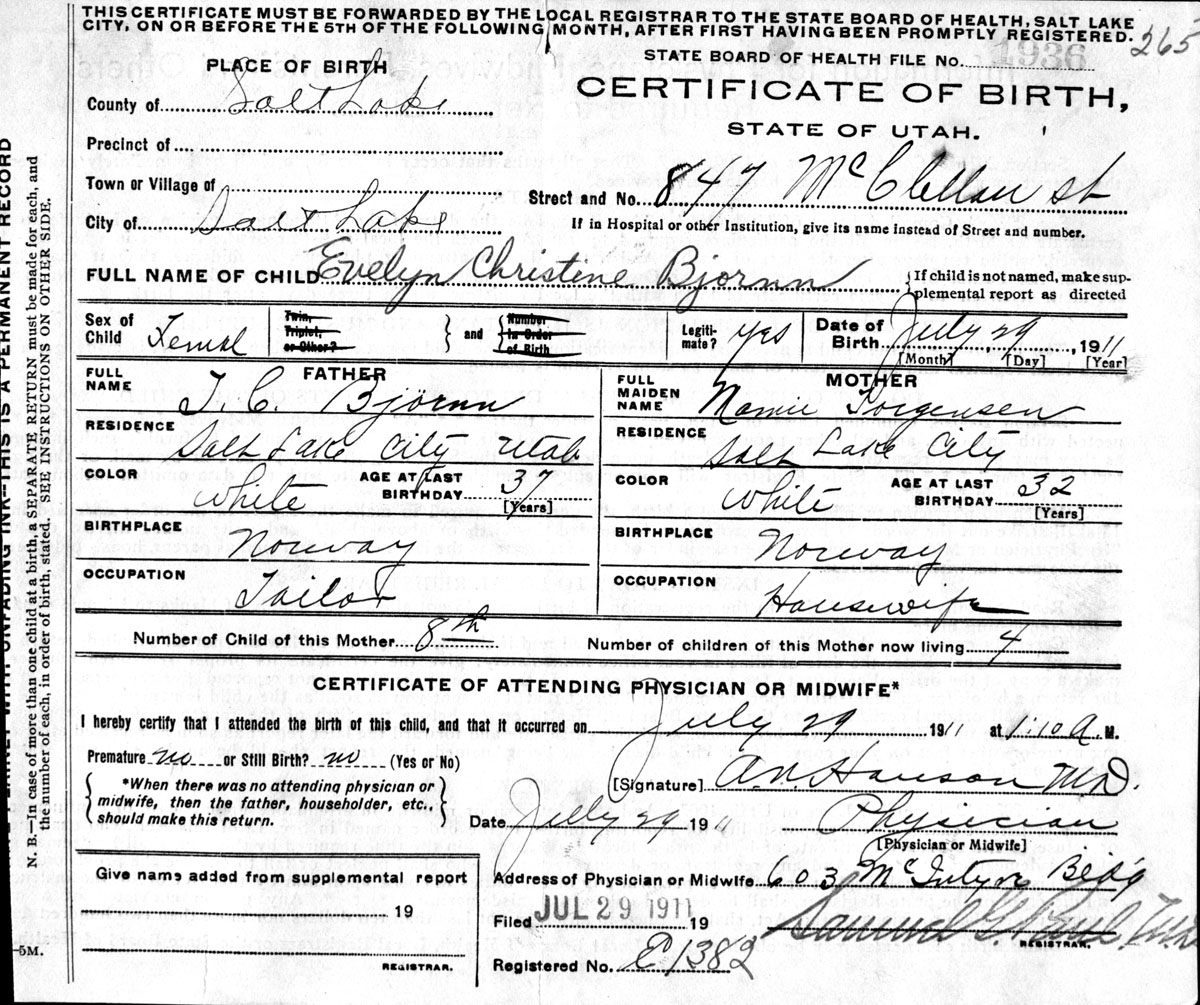 THIS CERTIFICATE MUST BE FORWARDED BY THE LOCAL REGISTRAR TO THE STATE BOARD OF HEALTH, SALT LAKE
CITY, ON OR BEFORE THE 5TH OF THE FOLLOWING MONTH, AFTER FIRST HAVING BEEN PROMPTLY REGISTERED. 265
PLACE OF BIRTH
STATE BOARD OF HEALTH FILE NO. 1936
CERTIFICATE OF BIRTH,
STATE OF UTAH.
County of Salt Lake
Precinct of
Town or Village of
Street and No. 847 McClellan st
City of Salt Lake
If in Hospital or other Institution, give its name instead of Street and number.
FULL NAME OF CHILD Evelyn Christine Bjornn
If child is not named, make sup-
plemental report as directed
Sex of Child Femal
Twin, Triplet, or Other? and Number in Order of Birth
Legiti-mate? yes
Date of Birth July 29, 1911
[Month] [Day] [Year]
FATHER
FULL NAME T. C. Bjornn
RESIDENCE Salt Lake City Utah
COLOR White AGE AT LAST BIRTHDAY 37 [Years]
BIRTHPLACE Norway
OCCUPATION Tailor
MOTHER
FULL MAIDEN NAME Mamie Jorgensen
RESIDENCE Salt Lake City
COLOR White AGE AT LAST BIRTHDAY 32 [Years]
BIRTHPLACE Norway
OCCUPATION Housewife
Number of Child of this Mother 8th Number of children of this Mother now living 4
CERTIFICATE OF ATTENDING PHYSICIAN OR MIDWIFE*
I hereby certify that I attended the birth of this child, and that it occurred on July 29 1911 at 1:10 A. M.
Premature no or Still Birth? no (Yes or No)
*When there was no attending physician or
midwife, then the father, householder, etc.,
should make this return.
[Signature] A.N. Hanson M.D.
Date July 29 1911 Physician
[Physician or Midwife]
Give name added from supplemental report
19
REGISTRAR.
Address of Physician or Midwife 603 McIntyre Bldg
Filed JUL 29 1911 19 Samuel G.
REGISTRAR.
Registered No. E1382
N. B.—In case of more than one child at a birth, a SEPARATE RETURN must be made for each, and
the number of each, in order of birth, stated. SEE INSTRUCTIONS ON OTHER SIDE.
WITH UNFADING INK—THIS IS A PERMANENT RECORD
-5M.